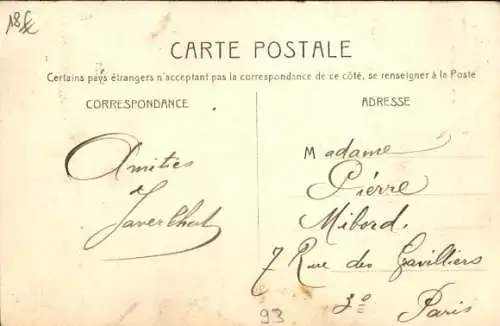 18 fx
CARTE POSTALE
Certains pays étrangers n'acceptant pas la correspondance de ce côté, se renseigner à la Poste
CORRESPONDANCE
ADRESSE
Amitiés
Madame
Pierre
Mibord.
7 Rue des Gavilliers
3e
Paris
93